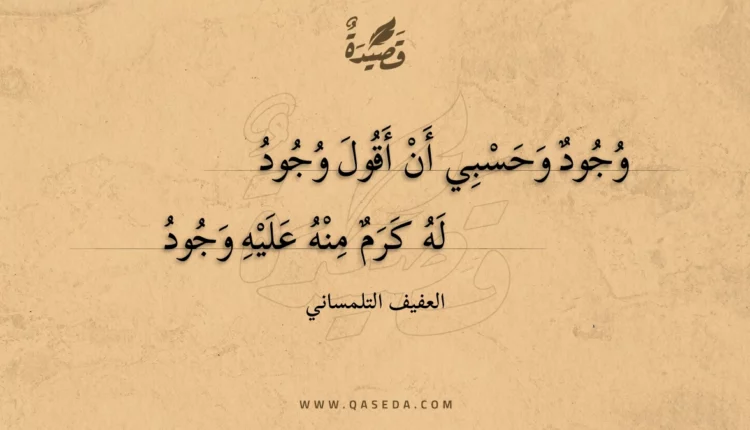 قَصِيْدَةٌ
وُجُودٌ وَحَسْبِي أَنْ أَقُولَ وُجُودُ
لَهُ كَرَمٌ مِنْهُ عَلَيْهِ وَجُودُ
العفيف التلمساني
WWW.QASEDA.COM